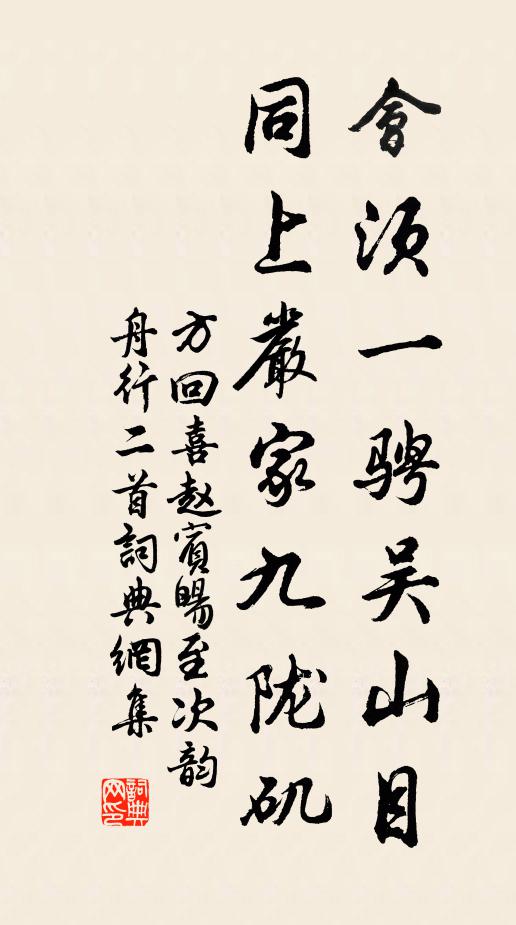 會須一骋吴山目
同上嚴家九陇矶
方回喜赵賓暘至次韵
舟行二首詞典網集
詞典网印